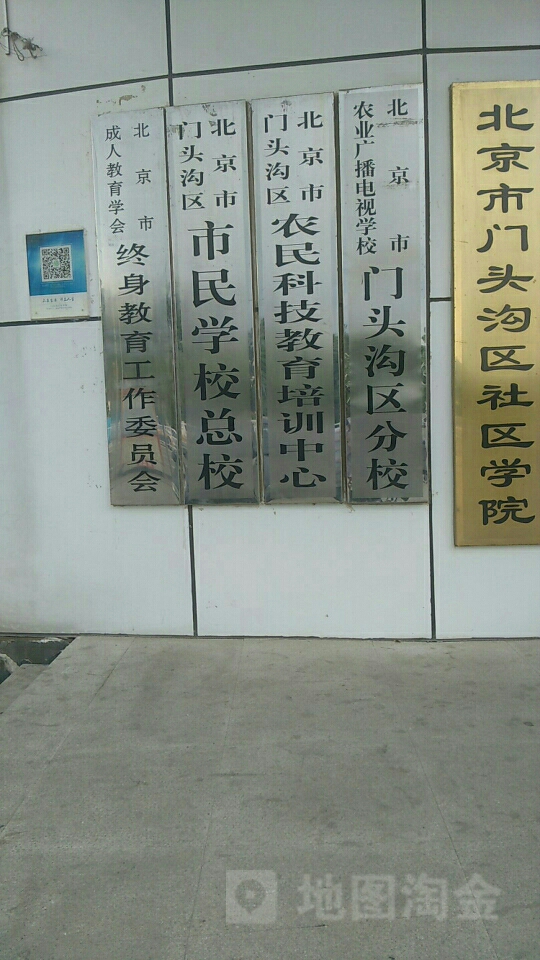 北京市门头沟区社区学院
北京市
农业广播电视学校
门头沟区分校
北京市
门头沟区
农民科技教育培训中心
北京市
门头沟区
市民学校总校
北京市
成人教育学会
终身教育工作委员会
地图淘金